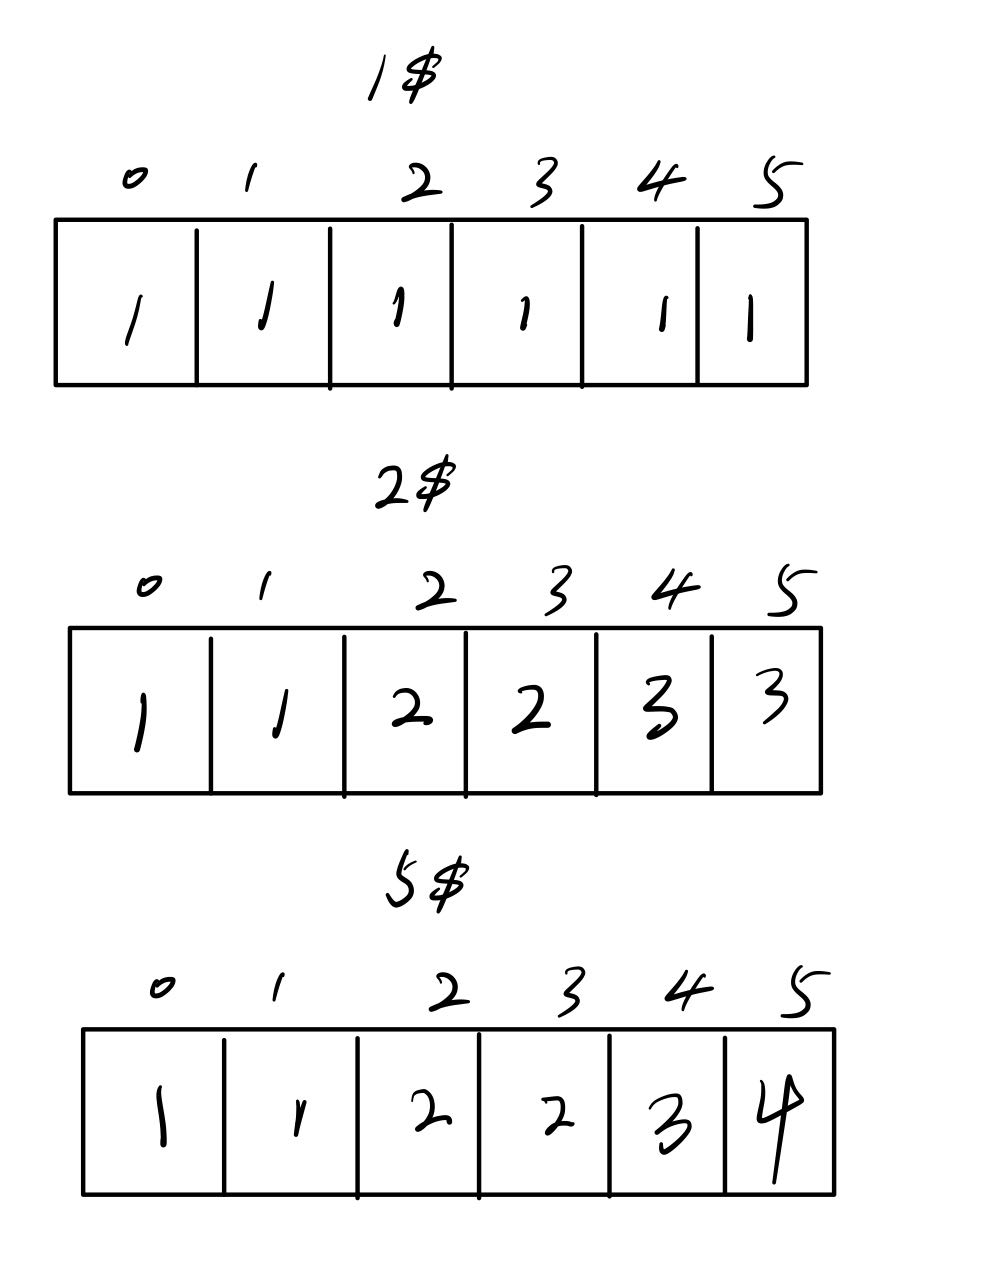 1$
0 1 2 3 4 5
1 1 1 1 1 1
2$
0 1 2 3 4 5
1 1 2 2 3 3
5$
0 1 2 3 4 5
1 1 2 2 3 4